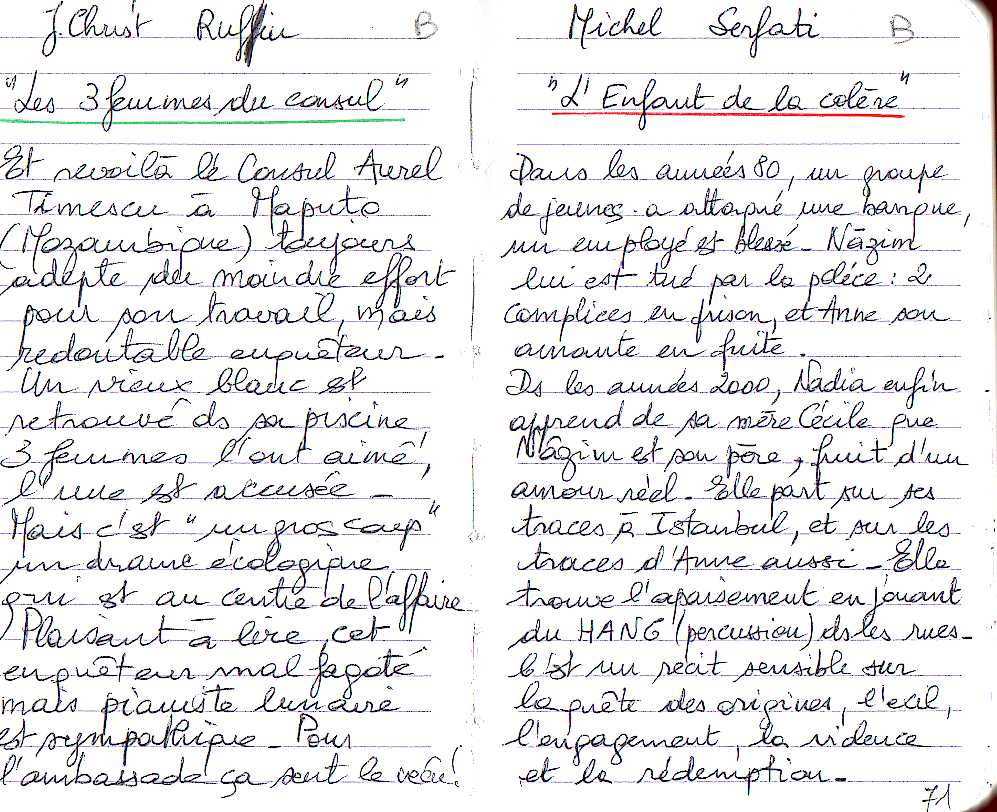 J. Christ Ruffin B
"Les 3 femmes du consul"
Et revoilà le Consul Aurel
Timescu à Maputo
(Mozambique) toujours
adepte du moindre effort
pour son travail, mais
redoutable enquêteur -
Un vieux blanc est
retrouvé ds sa piscine
3 femmes l'ont aimé,
l'une est accusée -
Mais c'est "un gros coup"
un drame écologique
qui est au centre de l'affaire
Plaisant à lire, cet
enquêteur mal fagoté
mais pianiste lunaire
est sympathique - Pour
l'ambassade ça sent le vécu!
Michel Serfati B
"L'Enfant de la colère"
Dans les années 80, un groupe
de jeunes a attaqué une banque,
un employé est blessé - Nâzim
lui est tué par la police : 2
complices en prison, et Anne son
amante en fuite.
Ds les années 2000, Nadia enfin
apprend de sa mère Cécile que
Nâzim est son père, fruit d'un
amour réel - Elle part sur ses
traces à Istanbul, et sur les
traces d'Anne aussi - Elle
trouve l'apaisement en jouant
du HANG (percussion) ds les rues -
C'est un récit sensible sur
la quête des origines, l'exil,
l'engagement, la violence
et la rédemption -
71